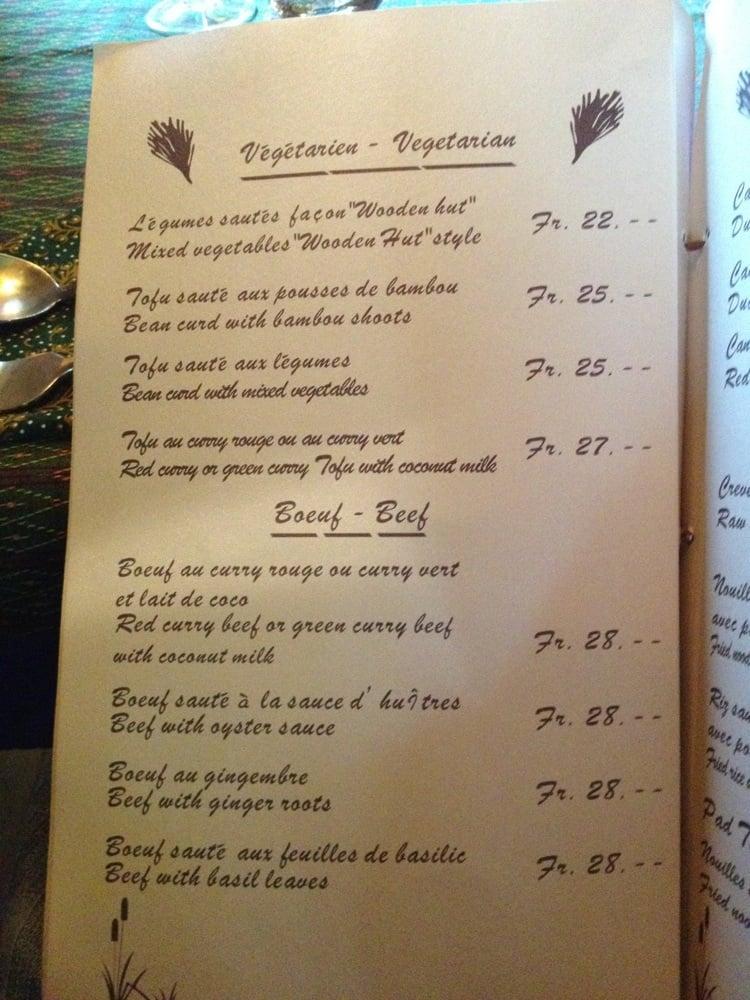 Végétarien - Vegetarian
Légumes sautés façon "Wooden hut"
Mixed vegetables "Wooden Hut" style
Fr. 22.--
Tofu sauté aux pousses de bambou
Bean curd with bambou shoots
Fr. 25.--
Tofu sauté aux légumes
Bean curd with mixed vegetables
Fr. 25.--
Tofu au curry rouge ou au curry vert
Red curry or green curry Tofu with coconut milk
Fr. 27.--
Boeuf - Beef
Boeuf au curry rouge ou curry vert
et lait de coco
Red curry beef or green curry beef
with coconut milk
Fr. 28.--
Boeuf sauté à la sauce d' huîtres
Beef with oyster sauce
Fr. 28.--
Boeuf au gingembre
Beef with ginger roots
Fr. 28.--
Boeuf sauté aux feuilles de basilic
Beef with basil leaves
Fr. 28.--
Red
Raw
avec
Riz
avec
Fried rice
Pad
Nouilles
Fried